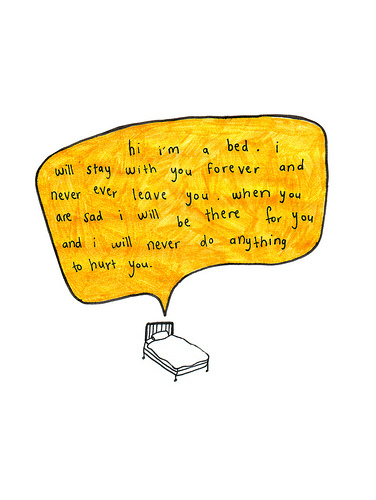 hi i'm a bed. i
will stay with you forever and
never ever leave you. when you
are sad i will be there for you
and i will never do anything
to hurt you.